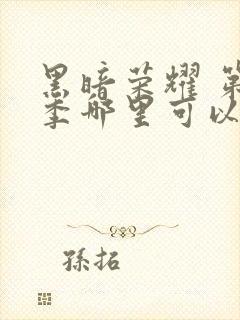 黑暗荣耀 第
季哪里可以
孫拓